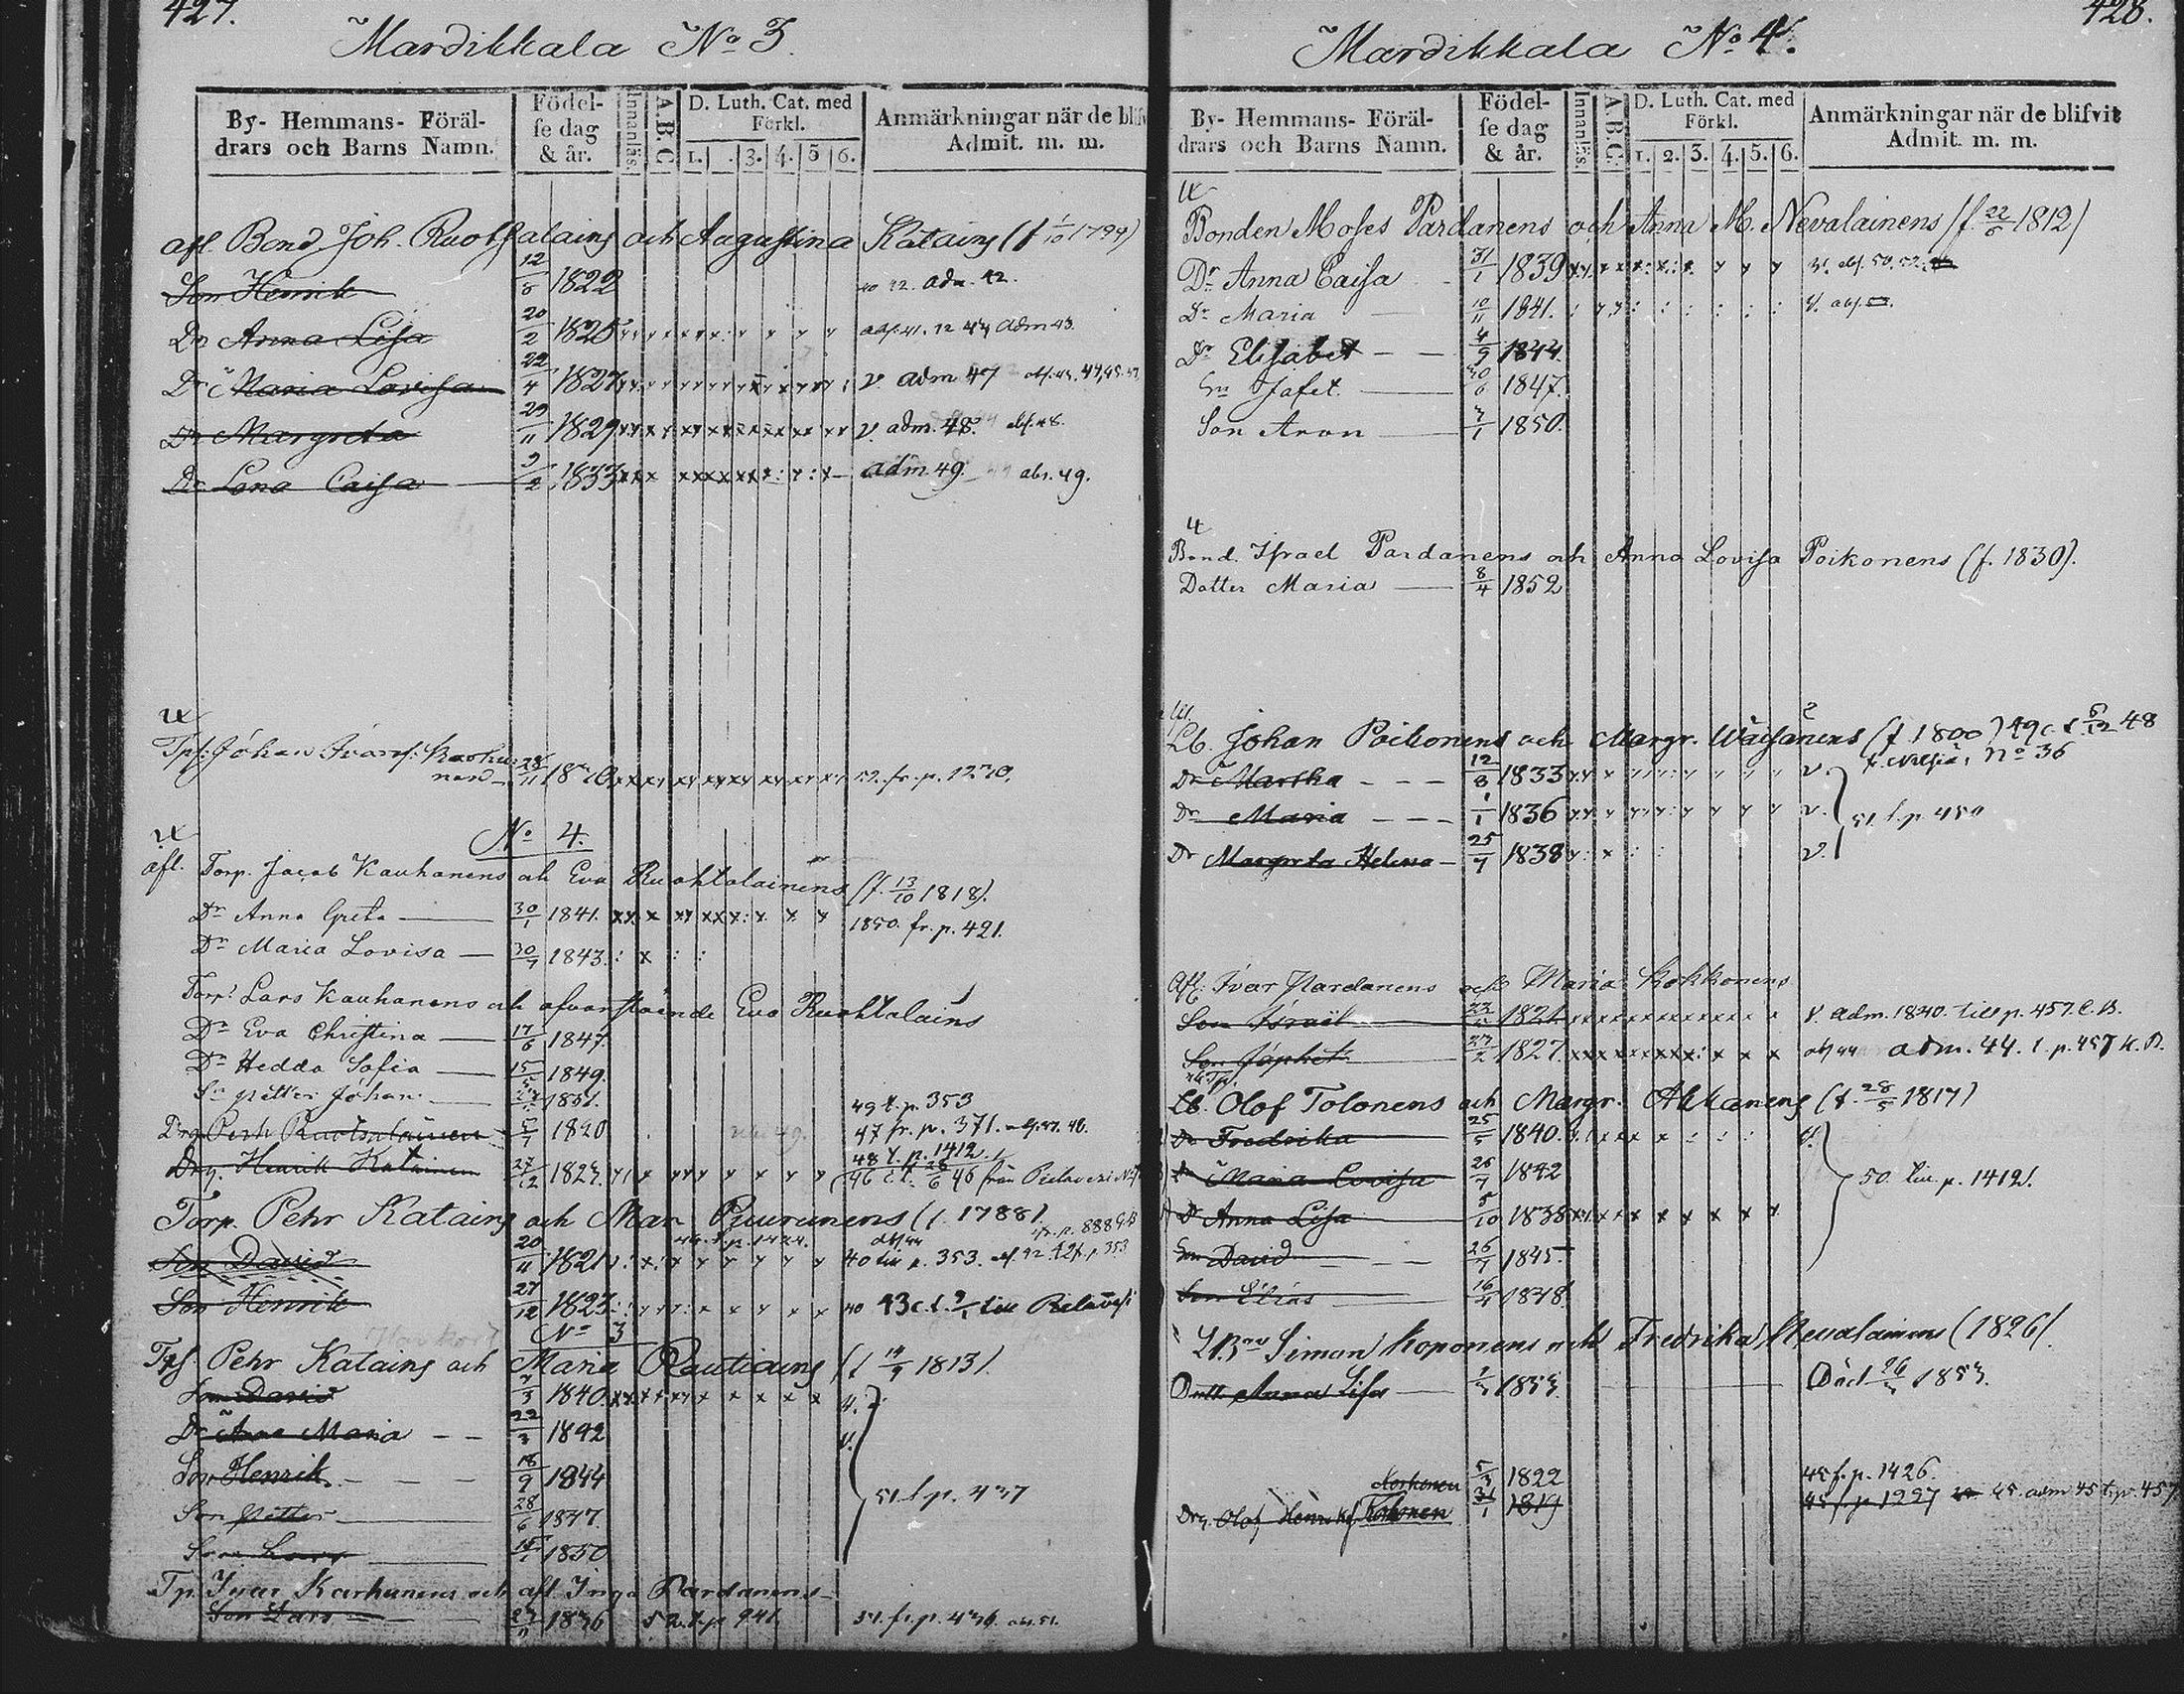 427.
Mardikkala No 3.
By- Hemmans- Föräl-
drars och Barns Namn.
Födel-
se dag
& år.
Innanläs.
A.B.C
D. Luth. Cat. med
Förkl.
1. . 3. 4. 5 6.
Anmärkningar när de blifv
Admit. m. m.
afl. Bond Joh. Ruotsalains och Augustina Katains (f 1/10 1794)
Son Henrik 12/8 1822 40 42. adm. 42.
Dr Anna Lisa 20/2 1825 adm 43.
Dr Maria Lovisa 22/4 1827 v. adm 47
Dr Margreta 29/11 1829 v. adm. 48. abs. 48.
Dr Lena Caisa 9/2 1833 adm. 49. abs. 49.
Tps: Johan Ivars: Karhu-
nen 28/11 fr. p. 1270.
No 4.
afl. Torp. Jacob Kauhanens och Eva Ruohtalainens (f. 13/10 1818).
Dr Anna Greta 30/1 1841. 1850. fr. p. 421.
Dr Maria Lovisa 30/7 1843.
Torp: Lars Kauhanens och ofvanstående Eva Ruohtalains
Dr Eva Christina 17/6 1847.
Dr Hedda Sofia 1849.
Sn Petter Johan 1851.
49 t. p. 353
Drg Pehr Ruotsalainen 1820 47 fr. p. 371.
48 t. p. 1412.
Drg. Henrik Katainen 27/12 1823. 46 från Pielavesi
Torp. Pehr Katains och Mar. Puurunens (f. 1788).
fr. p. 888
46. t. p. 1424.
Son David 20/11 1821 40 till p. 353. p. 353
Son Henrik 27/12 1823 40 43 c. t. 9/1 till Pielavesi
No 3
Tps. Pehr Katains och Maria Rautiains (f 14/9 1813).
Son David 1840. v.
Dr Anna Maria 22/3 1842 v.
Son Henrik 18/9 1844
51 t. p. 437
Son Petter 28/6 1847.
Son Lars 15/1 1850
Tp. Ivar Karhunens och afl. Inga Pardanens
Son Lars 1836 52. t. p. 941. 51. fr. p. 436. abs. 51.
428.
Mardikkala No 4.
By- Hemmans- Föräl-
drars och Barns Namn.
Födel-
se dag
& år.
Innanläs.
A.B.C
D. Luth. Cat. med
Förkl.
1. 2. 3. 4. 5. 6.
Anmärkningar när de blifvit
Admit. m. m.
Bonden Moses Pardanens och Anna M. Nevalainens (f. 22/6 1812)
Dr Anna Caisa 31/1 1839 v. abs. 50. 52.
Dr Maria 10/11 1841. v. abs.
Dr Elisabet 4/9 1844
Sn Jafet 30/6 1847.
Son Aron 1850.
Bond. Israel Pardanens och Anna Lovisa Poikonens (f. 1830).
Dotter Maria 8/4 1852
Lb. Johan Poikonens och Margr. Wäisänens (f. 1800) 49 c. t. 6/12 48
No 36
Dr Martha 12/8 1833 v.
Dr Maria 1/1 1836 v.
51. t. p. 450
Dr Margreta Helena 25/7 1838 v.
Afl. Ivar Pardanens och Maria Kokkonens
Son Israël 1821 v. adm. 1840. till p. 457. C. B.
Son Japhet 27/2 1827. abs 44 adm. 44. t. p. 457 K. B.
Lb. Olof Tolonens och Margr. Akkanens (f. 28/5 1817)
Dr Fredrika 25/5 1840. v.
Dr Maria Lovisa 26/7 1842
50. till p. 1412.
Dr Anna Lisa 5/10 1838
Son David 26/7 1845.
Son Elias 16/4 1848.
Simon Koponens och Fredrika Nevalainens (1826).
Dott. Anna Lisa 1853. Död 26/5 1853.
Korhonen 5/3 1822 45 f. p. 1426.
Drg. Olof Henriks. Tolonen 31/1 1819 45 f. p 1227 45. adm 45 t. p. 457